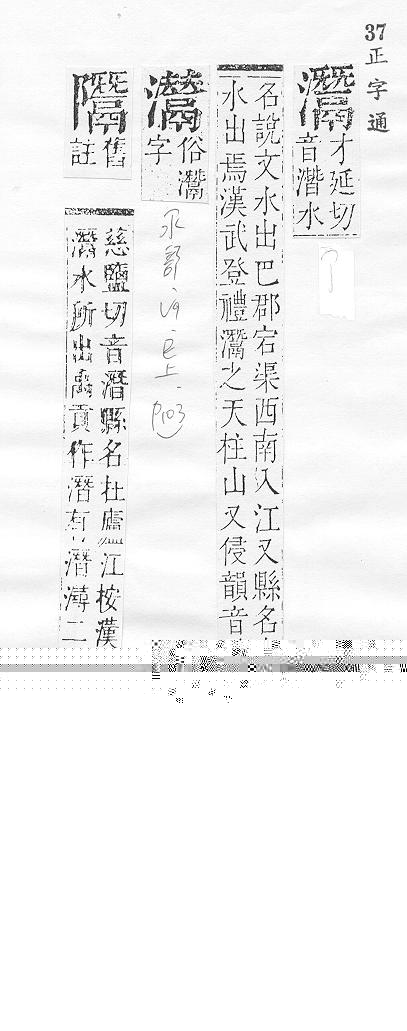 37 正字通
灊
才延切
音濳水
名說文水出巴郡宕渠西南入江又縣名
水出焉漢武登禮灊之天柱山又侵韻音
俗灊
字
水部
巳上
P103
舊
註
慈鹽切音潛縣名在廬江按漢
灊水所出禹貢作潛有潛
二